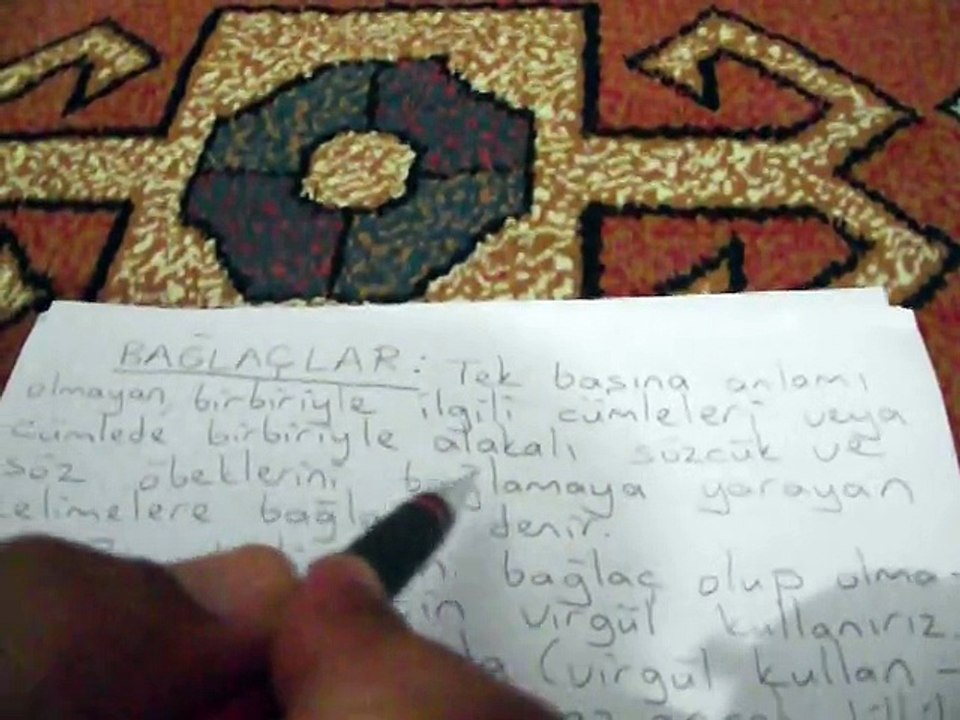 BAĞLAÇLAR: Tek başına anlamı
olmayan, birbiriyle ilgili cümleleri veya
cümlede birbiriyle alakalı sözcük ve
söz öbeklerini bağlamaya yarayan
kelimelere denir.
bağlaç olup olma-
virgül kullanırız.
(virgül kullan-